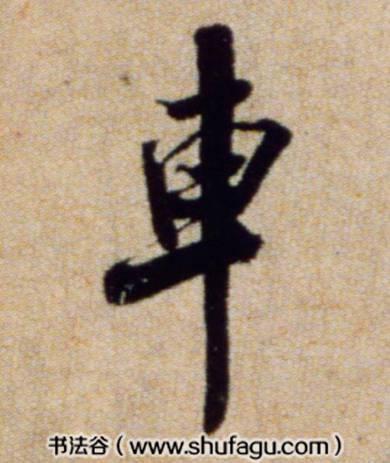 車
书法谷（www.shufagu.com）